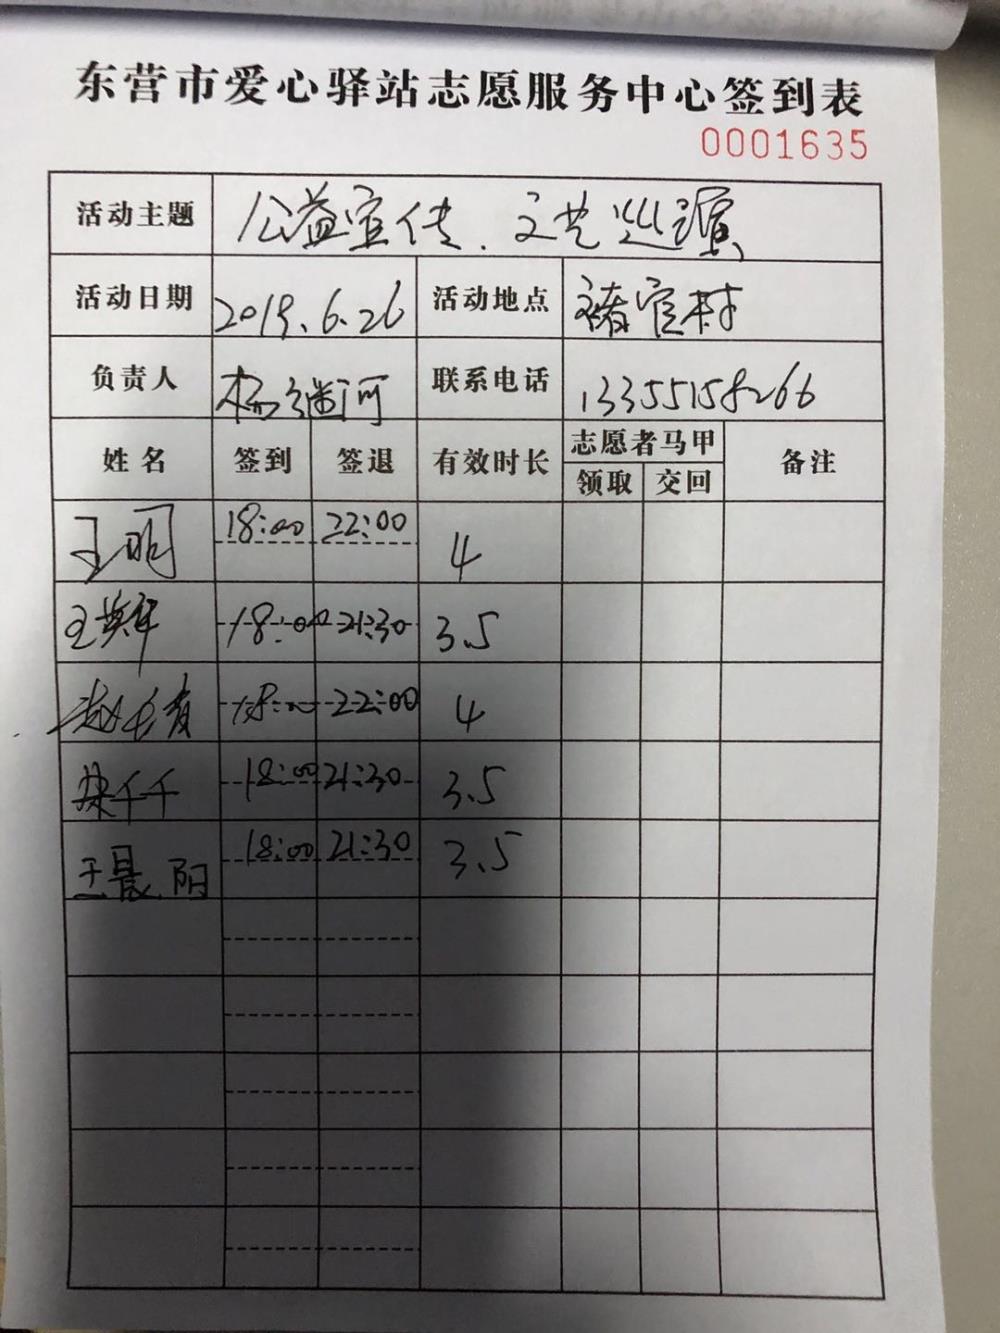 东营市爱心驿站志愿服务中心签到表
0001635
活动主题 公益宣传、文艺巡演
活动日期 2019.6.26 活动地点 褚官村
负责人 杨继河 联系电话 13355158266
姓名 签到 签退 有效时长 志愿者马甲 备注
领取 交回
王明 18:00 22:00 4
王英军 18:00 21:30 3.5
18:00 22:00 4
千千 18:00 21:30 3.5
王晨阳 18:00 21:30 3.5